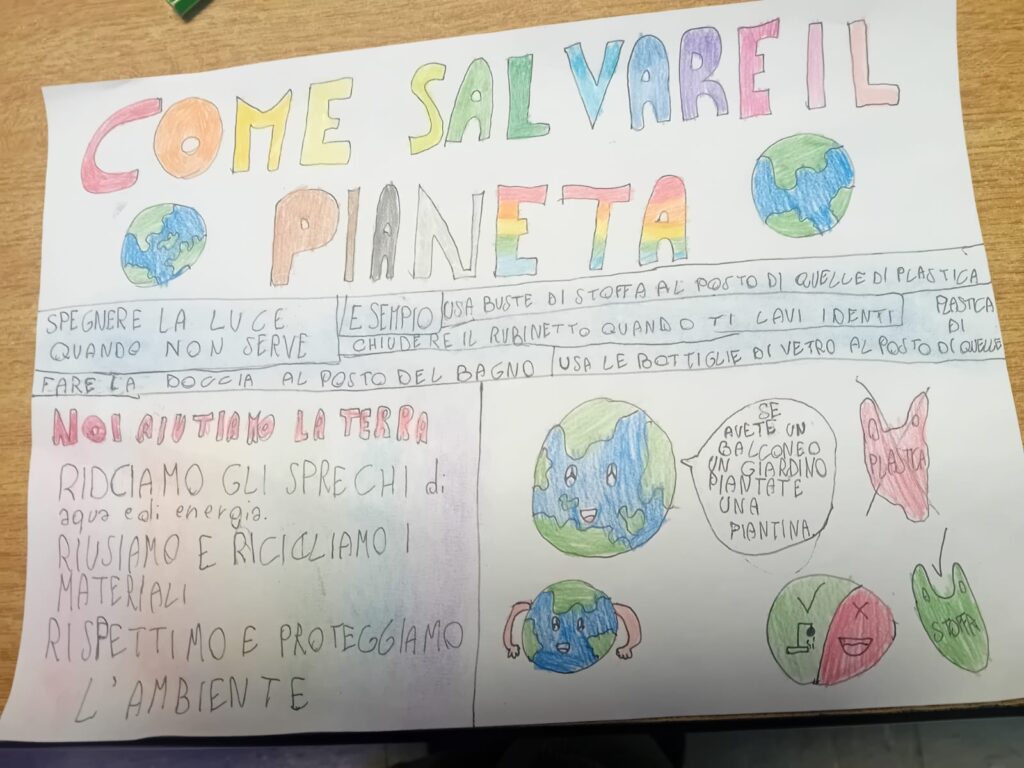 COME SALVARE IL
PIANETA
SPEGNERE LA LUCE
QUANDO NON SERVE
ESEMPIO
USA BUSTE DI STOFFA AL POSTO DI QUELLE DI PLASTICA
CHIUDERE IL RUBINETTO QUANDO TI LAVI I DENTI
FARE LA DOCCIA AL POSTO DEL BAGNO
USA LE BOTTIGLIE DI VETRO AL POSTO DI QUELLE
DI
PLASTICA
NOI AIUTIAMO LA TERRA
RIDCIAMO GLI SPRECHI di
aqua e di energia.
RIUSIAMO E RICICLIAMO I
MATERIALI
RISPETTIMO E PROTEGGIAMO
L'AMBIENTE
SE
AVETE UN
BALCONE O
UN GIARDINO
PIANTATE
UNA
PIANTINA
PLASTICA
STOFFA